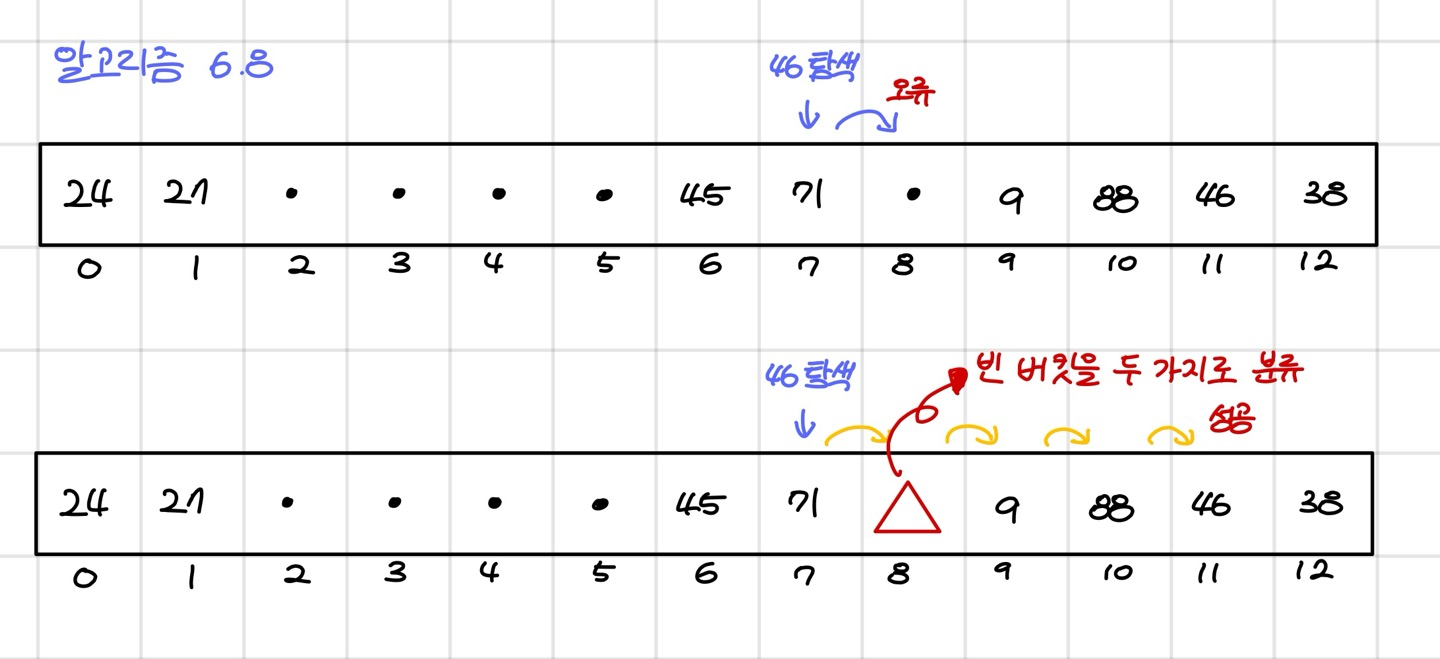 알고리즘 6.8
46 탐색
오류
24 27 • • • • 45 71 • 9 88 46 38
0 1 2 3 4 5 6 7 8 9 10 11 12
46 탐색
빈 버킷을 두 가지로 분류
성공
24 27 • • • • 45 71 △ 9 88 46 38
0 1 2 3 4 5 6 7 8 9 10 11 12